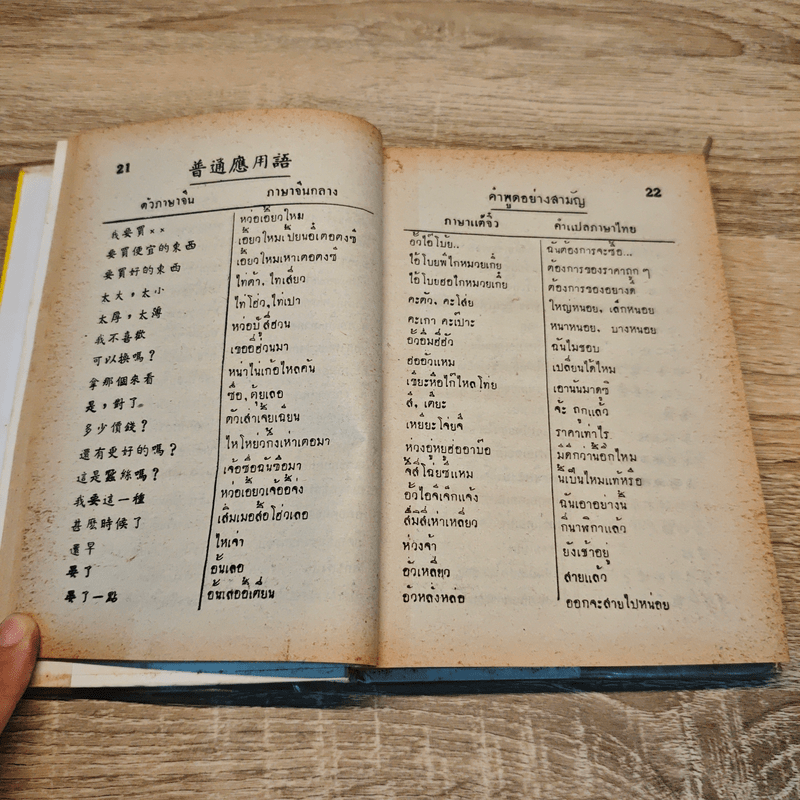 21 普通應用語
ตัวภาษาจีน ภาษาจีนกลาง
我要買×× หว่อเอี้ยวใหม
要買便宜的東西 เอี้ยวใหมเปี้ยนอี๋เตอตงซี
要買好的東西 เอี้ยวใหมเหาเตอตงซี
太大，太小 ไท่ต้า, ไทเสี่ยว
太厚，太薄 ไทโฮ่ว, ไท่เปา
我不喜歡 หว่อบู้สี่ฮวน
可以換嗎？ เขออี่ฮ่วนมา
拿那個來看 หน่าไน่เก้อไหลคัน
是，對了。 ซื่อ, ตุ้ยเลอ
多少價錢？ ตัวเส่าเจี้ยเฉียน
還有更好的嗎？ ไหโหย่วก้งเห่าเตอมา
這是蠶絲嗎？ เจ้อซื่อฉันซือมา
我要這一種 หว่อเอี้ยวเจ้ออี้จ่ง
甚麼時候了 เสิมเมอสือโฮ่วเลอ
還早 ไหเจ๋า
晏了 อั้นเลอ
晏了一點 อั้นเลออี้เตี่ยน
คำพูดอย่างสามัญ 22
ภาษาแต้จิ๋ว คำแปลภาษาไทย
อั๊วไอ๊โบ้ย.. ฉันต้องการจะซื้อ...
ไอ๊โบ้ยพีไกหมวยเกี๋ย ต้องการของราคาถูก ๆ
ไอ๊โบ้ยฮอไกหมวยเกี๋ย ต้องการของอย่างดี
คะตัว, คะโส่ย ใหญ่หน่อย, เล็กหน่อย
คะเกา คะเป๊าะ หนาหน่อย, บางหน่อย
อั๊วอึ่มฮี่ฮัว ฉันไม่ชอบ
ฮ่ออัวแหม เปลี่ยนได้ไหม
เขี่ยะหื่อไก๊ไหลโท่ย เอานันมาดูซิ
สี่, เตี๊ยะ จ้ะ ถูกแล้ว
เหยี่ยะโจ่ยจี๊ ราคาเท่าไร
ห่วงอู่หยูฮออาบ๊อ มีดีกว่านี้อีกไหม
จี๊สี่โฉ่ยซี้แหม นี้เป็นไหมแท้หรือ
อั๊วไอจีเจ็กแจ้ง ฉันเอาอย่างนี้
สี่มิสี่เห่าเหลี่ยว กี่นาฬิกาแล้ว
ห่วงจ้า ยังเช้าอยู่
อัวเหลี่ยว สายแล้ว
อัวหลั่งหล่อ ออกจะสายไปหน่อย